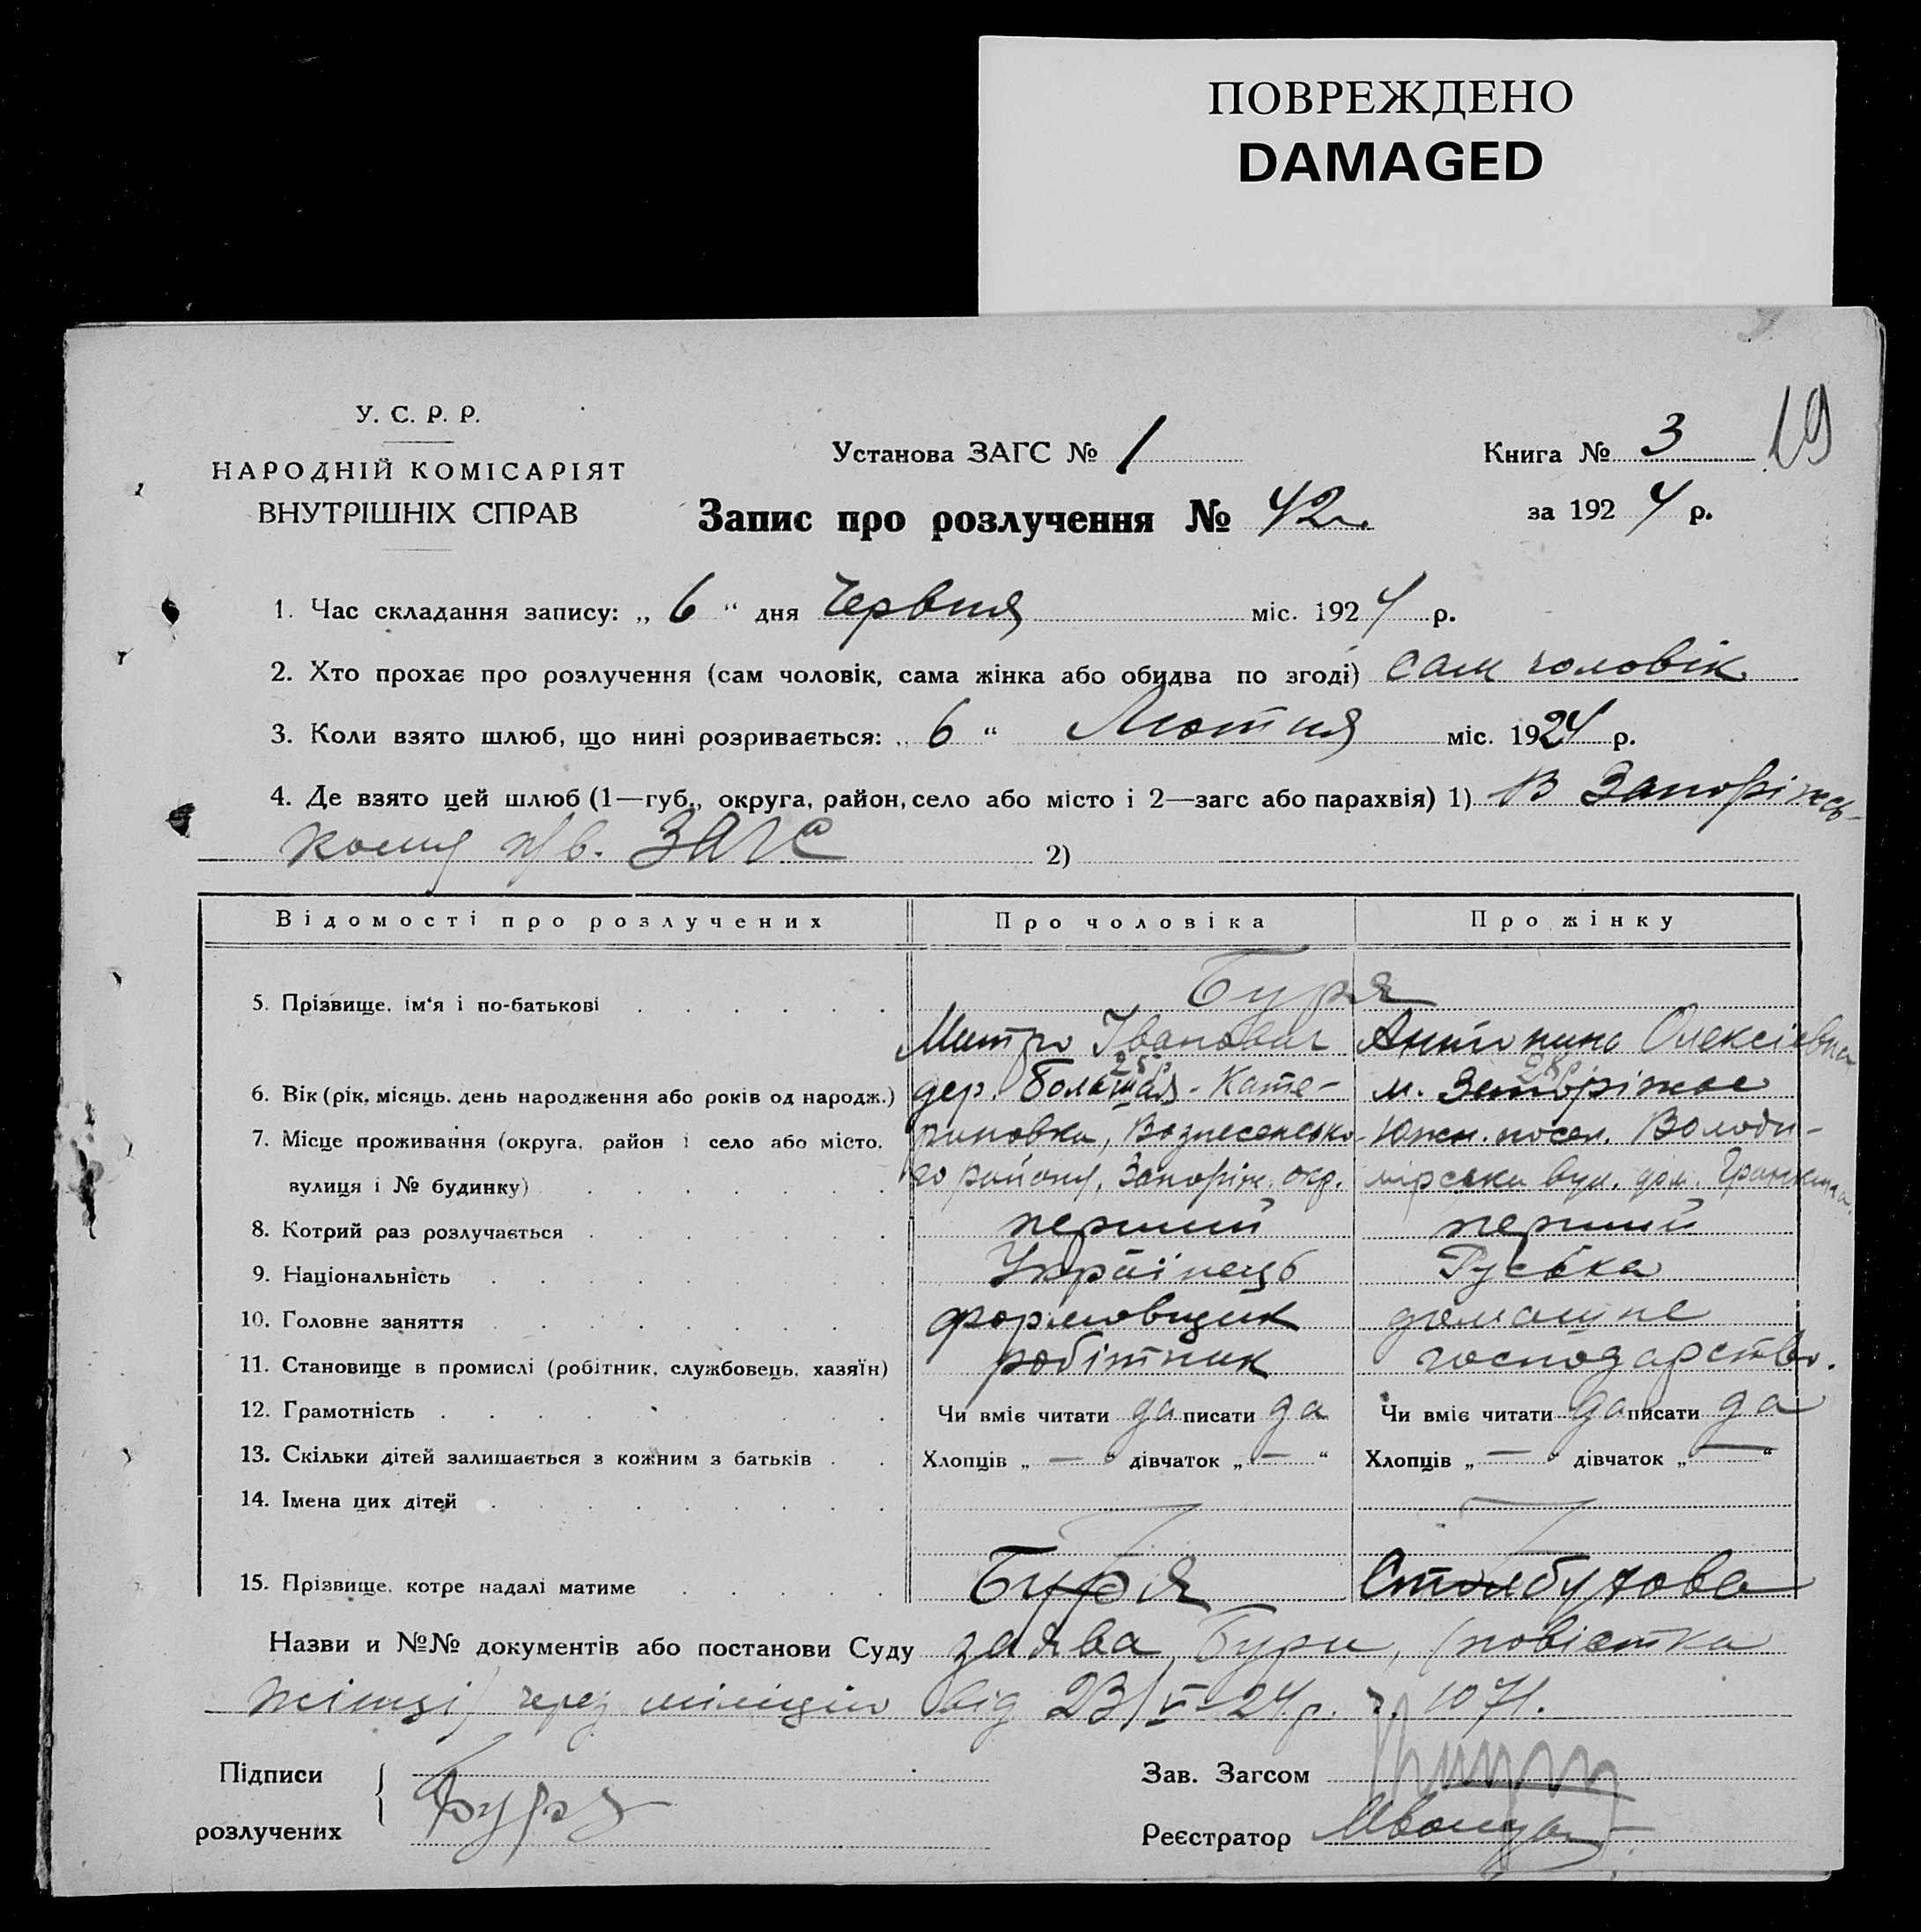 ПОВРЕЖДЕНО
DAMAGED
19
У. С. Р. Р.
НАРОДНІЙ КОМІСАРІЯТ
ВНУТРІШНІХ СПРАВ
Установа ЗАГС № 1
Книга № 3
за 1924 р.
Запис про розлучення № 42
1. Час складання запису: „ 6 “ дня Червня міс. 1924 р.
2. Хто прохає про розлучення (сам чоловік, сама жінка або обидва по згоді) сам чоловік
3. Коли взято шлюб, що нині розривається: „ 6 “ Лютня міс. 1924 р.
4. Де взято цей шлюб (1—губ., округа, район, село або місто і 2—загс або парахвія) 1) В Запоріжсь-
кому ЗАГС 2)
Відомості про розлучених Про чоловіка Про жінку
5. Прізвище, ім‘я і по-батькові Буря
Митро Іванович Антонина Олексіевна
25 р 28 р
6. Вік (рік, місяць, день народження або років од народж.) дер. Большая-Кате- м. Запоріжже
7. Місце проживання (округа, район і село або місто, риновка, Вознесенсько- Южн. посел. Володи-
вулиця і № будинку) го району, Запоріж. окр. мірська вул. дом.
8. Котрий раз розлучається перший перший
9. Національність Українець Руська
10. Головне заняття формовщик домашне
11. Становище в промислі (робітник, службовець, хазяїн) робітник господарство.
12. Грамотність Чи вміє читати да писати да Чи вміє читати да писати да
13. Скільки дітей залишається з кожним з батьків Хлопців „ — “ дівчаток „ — “ Хлопців „ — “ дівчаток „ — “
14. Імена цих дітей
15. Прізвище, котре надалі матиме Буря Столбукова
Назви и №№ документів або постанови Суду заява Бури, (повістка
жінці) через міліцію від 23/V-24 р. ч. 1071.
Підписи
розлучених
Буря
Зав. Загсом
Реєстратор